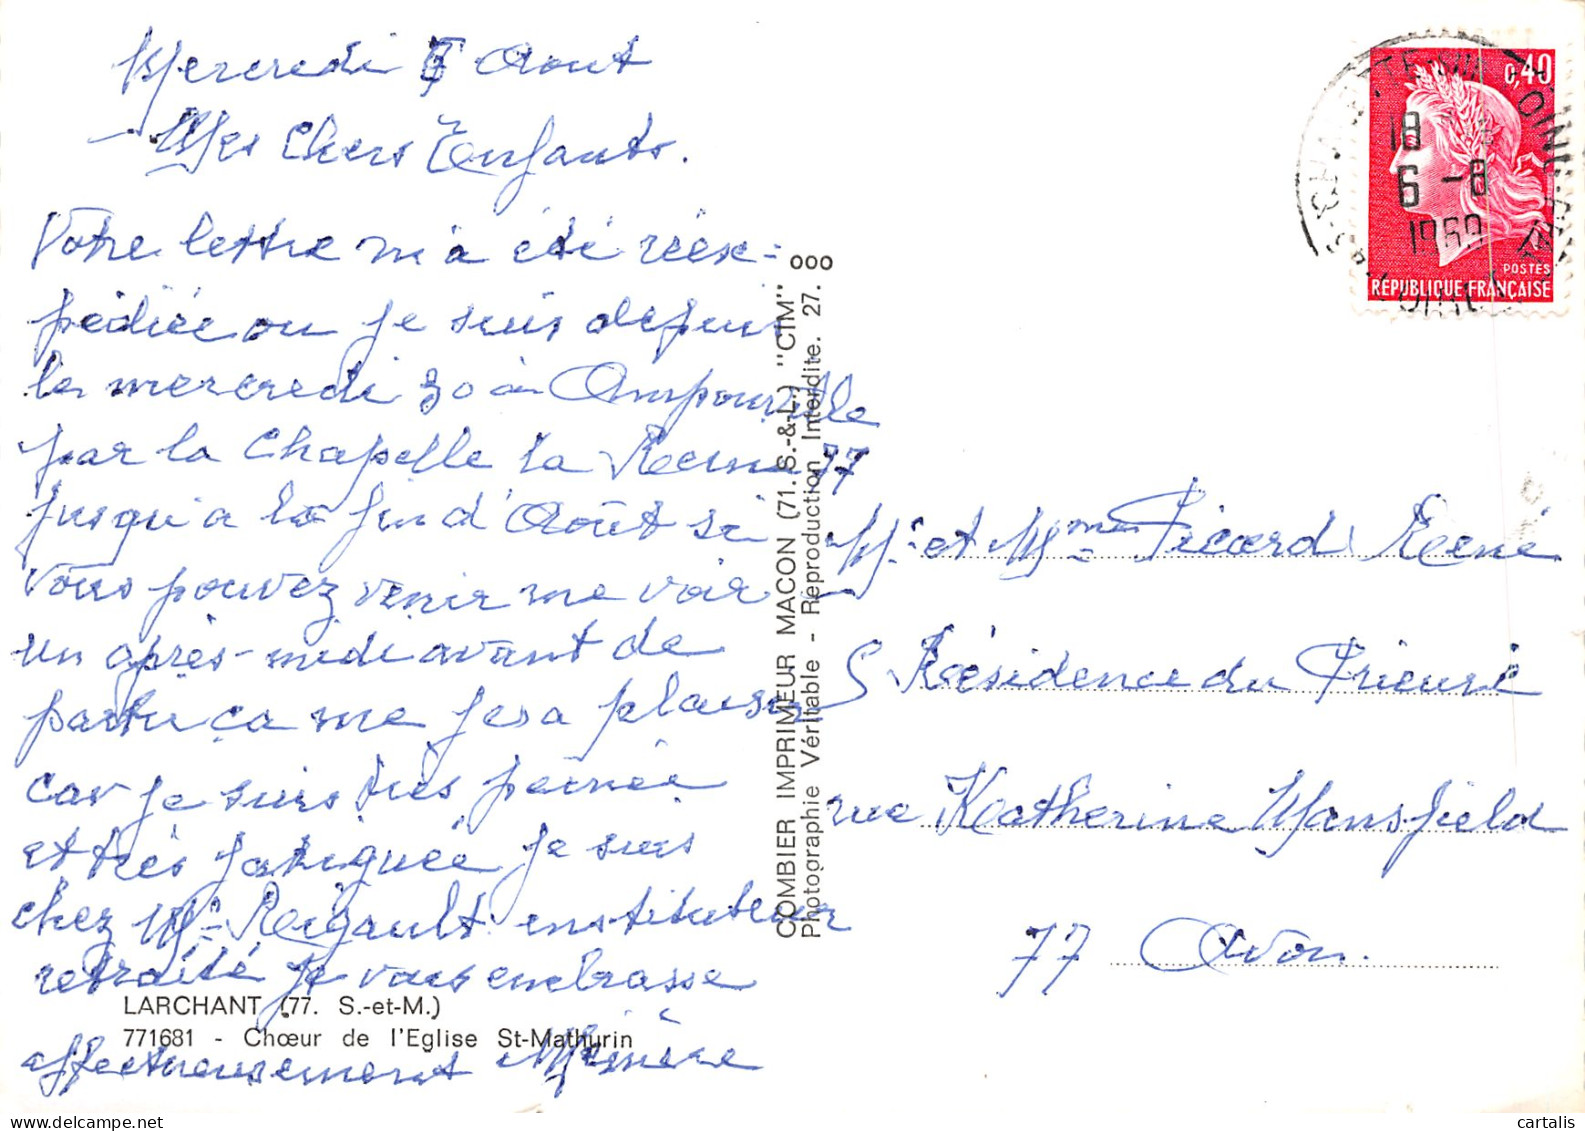 Mercredi 6 Aout
Mes Chers Enfants.
Votre lettre m'a été réex-
pédiée ou je suis depuis
le mercredi 30 à Amponville
par la Chapelle la Reine 77
jusqu'a la fin d'Août si
vous pouvez venir me voir
un après-midi avant de
partir ça me fera plaisir
car je suis très peinée
et très fatiguée je suis
chez Mr Rigault instituteur
retraité je vous embrasse
affectueusement Mémère
LARCHANT (77. S.-et-M.)
771681 - Chœur de l'Eglise St-Mathurin
COMBIER IMPRIMEUR MACON (71. S.-&-L.) "CIM"
Photographie Véritable - Reproduction Interdite. 27. 000
0,40
POSTES
RÉPUBLIQUE FRANÇAISE
18
6 -8
1969
Mr et Mme Picard René
5 Résidence du Prieuré
rue Katherine Mansfield
77 Avon.
cartalis